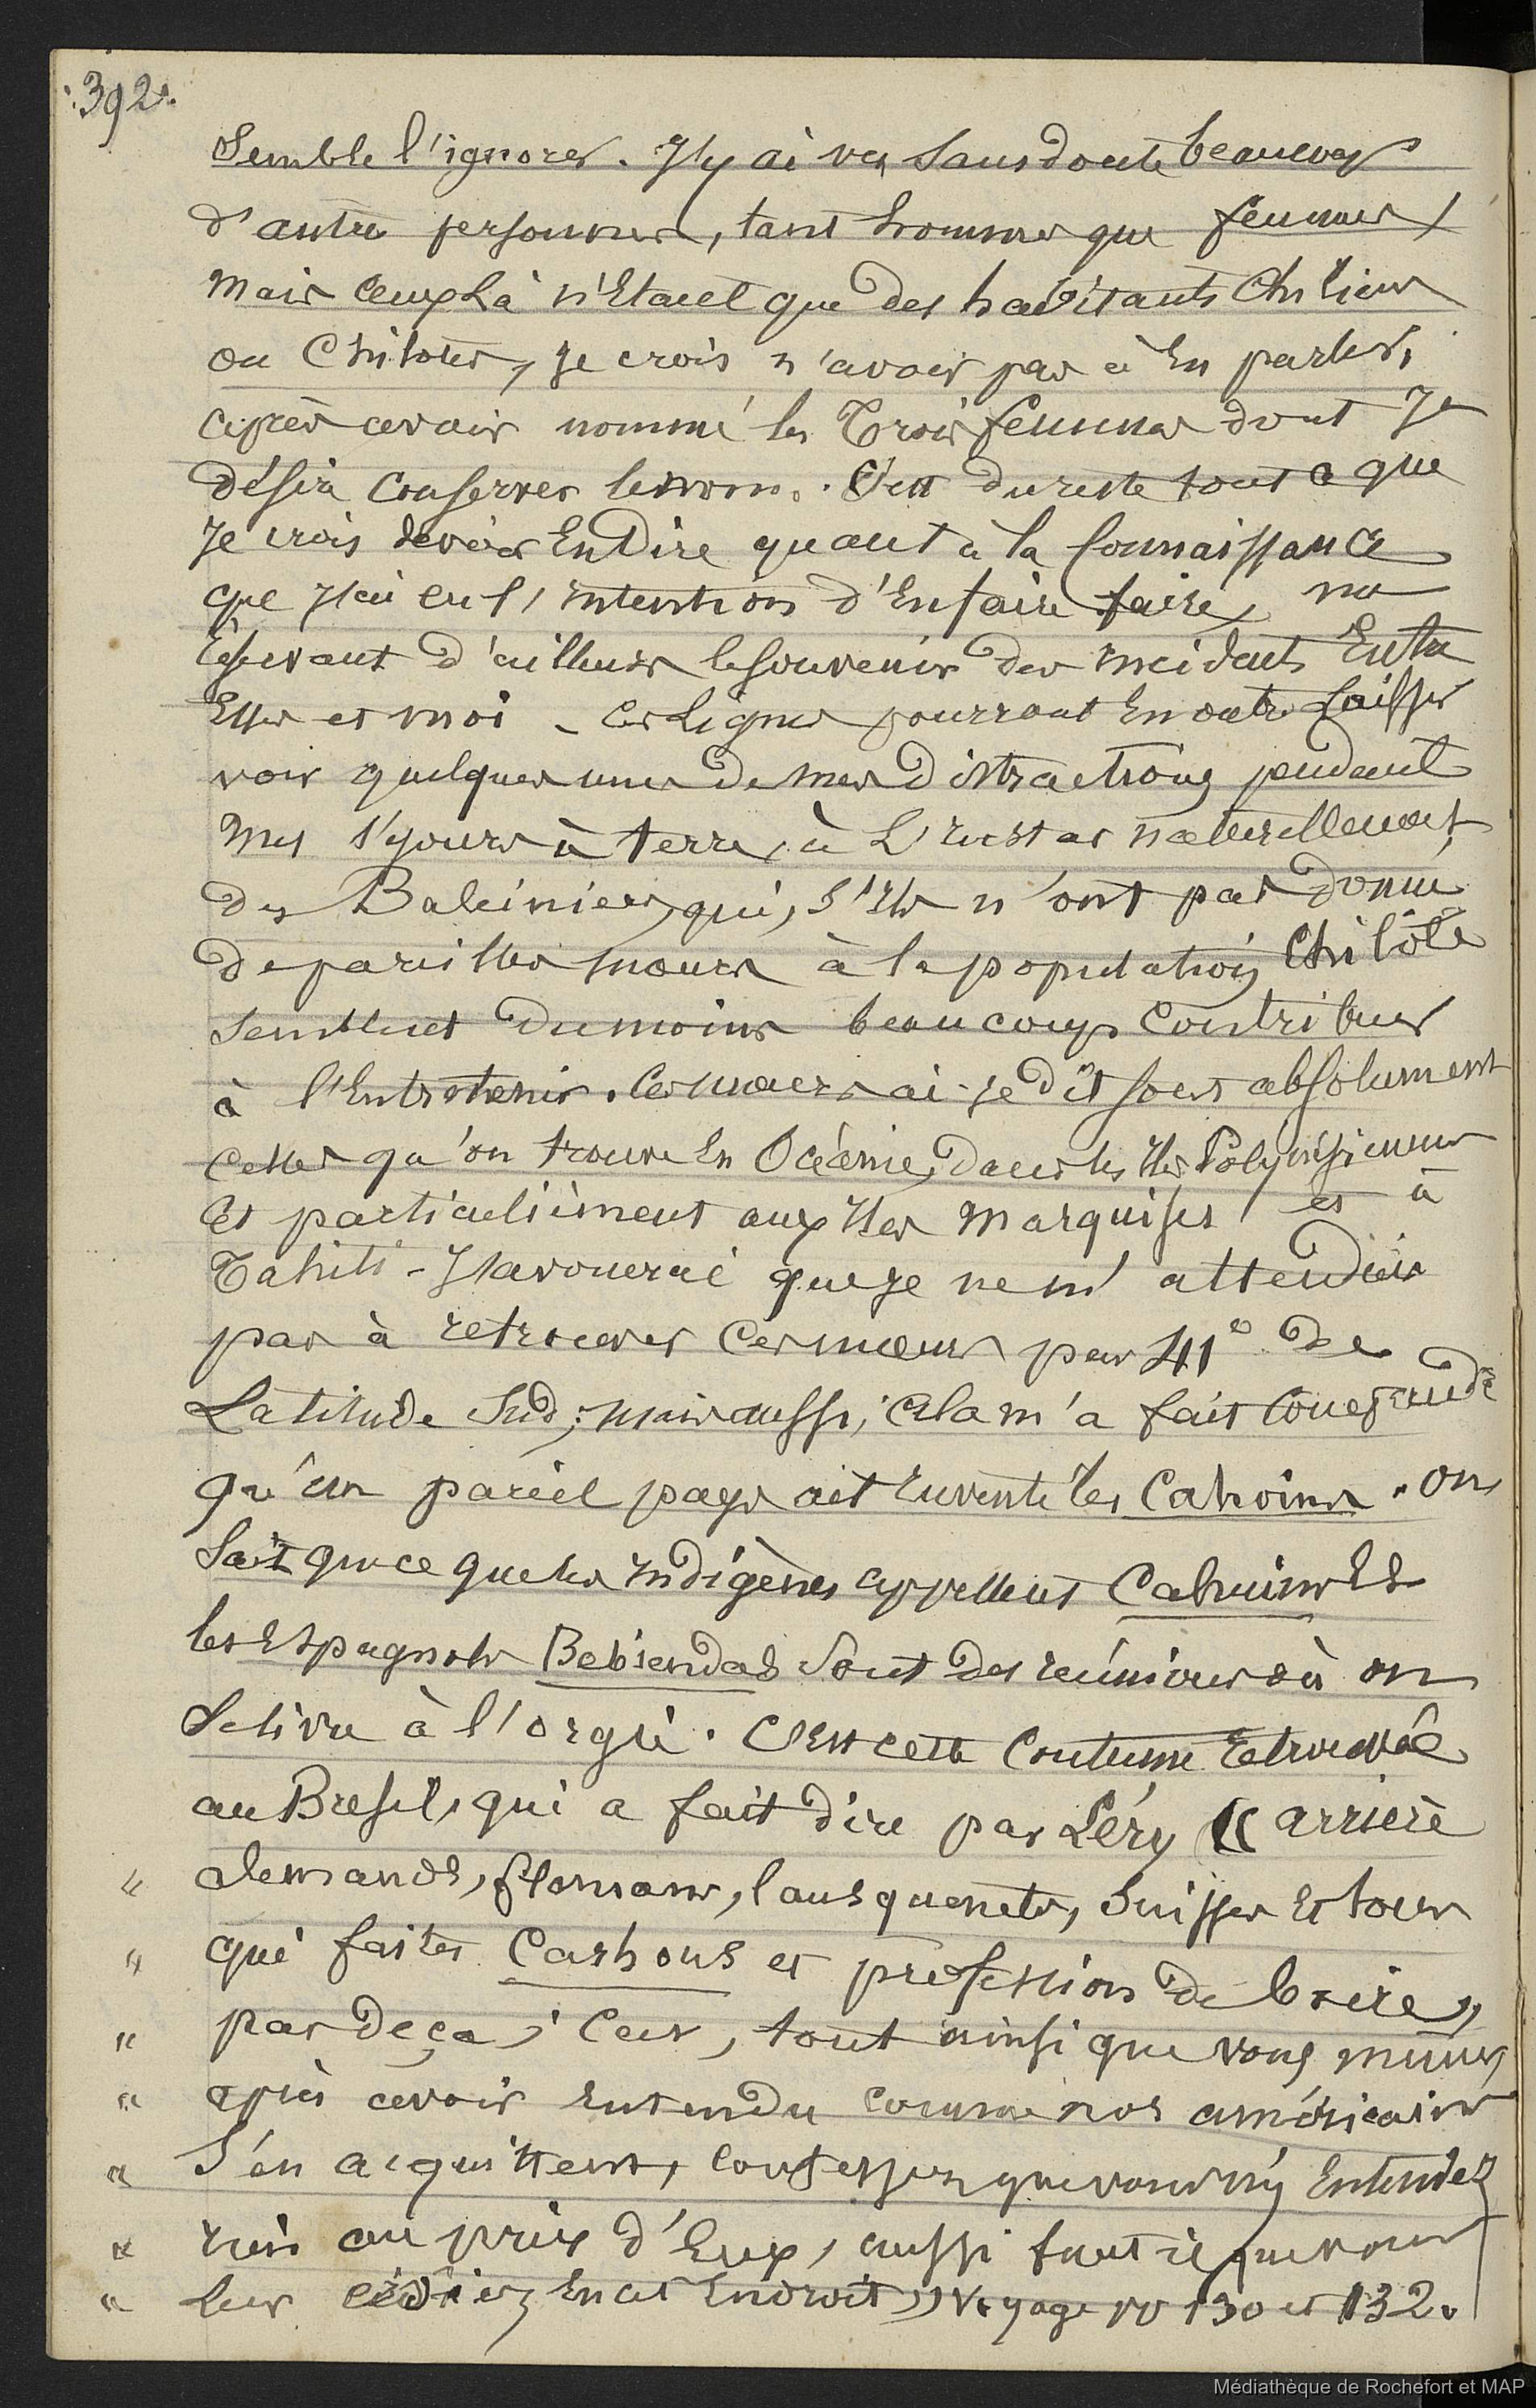 392.
Semble l'ignorer. J'y ai vu, sans doute beaucoup
d'autre personnes, tant hommes que femmes,
mais ceux là n'Etaiet que des habitants Chiliens
ou Chilotes, Je crois n'avoir pas à En parler,
après avoir nommé les Trois femmes dont Je
désire conserver le nom. C'est du reste tout ce que
Je crois devoir En Dire quant à la Connaissance
que J'ai eu l'intention d'En faire faire, me
réservant d'ailleurs le souvenir des incidents Entre
Elles et moi - Ces Lignes pourront En outre laisser
voir quelques unes de mes Distractions pendant
mes séjours à terre, à L'instar naturellement,
des Baleiniers, qui, s'Ils n'ont pas donné
de pareilles mœurs à la population Chilôte
semblent du moins beaucoup Contribuer
à l'Entretenir. Ces mœurs ai-je dit sont absolument
celles qu'on trouve En Océanie, dans les Iles Polynésiennes
et particulièrement aux Iles Marquises et à
Tahiti - J'avouerai que je ne m'attendais
pas à retrouver Ces mœurs par 41° de
Latitude Sud; mais aussi, Cela m'a fait Comprendre
qu'un pareil pays ait Inventé les Cahoins. on
Sait que ce que les indigènes appellent Cahuins Et
les Espagnols Bebiendas Sont des réunions où on
Se livre à l'orgie. C'Est cette Coutume retrouvée
au Bresil, qui a fait dire par Léry « arrière
" alemands, flamans, lansquenets, Suisses Et tous
" qui faites Carhous et profession de boire,
" par deça; Car, tout ainsi que vous mêmes,
" après avoir Entendu comme nos américains
" S'en acquittent, confesserez que vous n'y Entendez
" rien au prix d'Eux, aussi faut il que vous
" leur cédiez En cet Endroit » Voyage pp 130 et 132.
Médiathèque de Rochefort et MAP